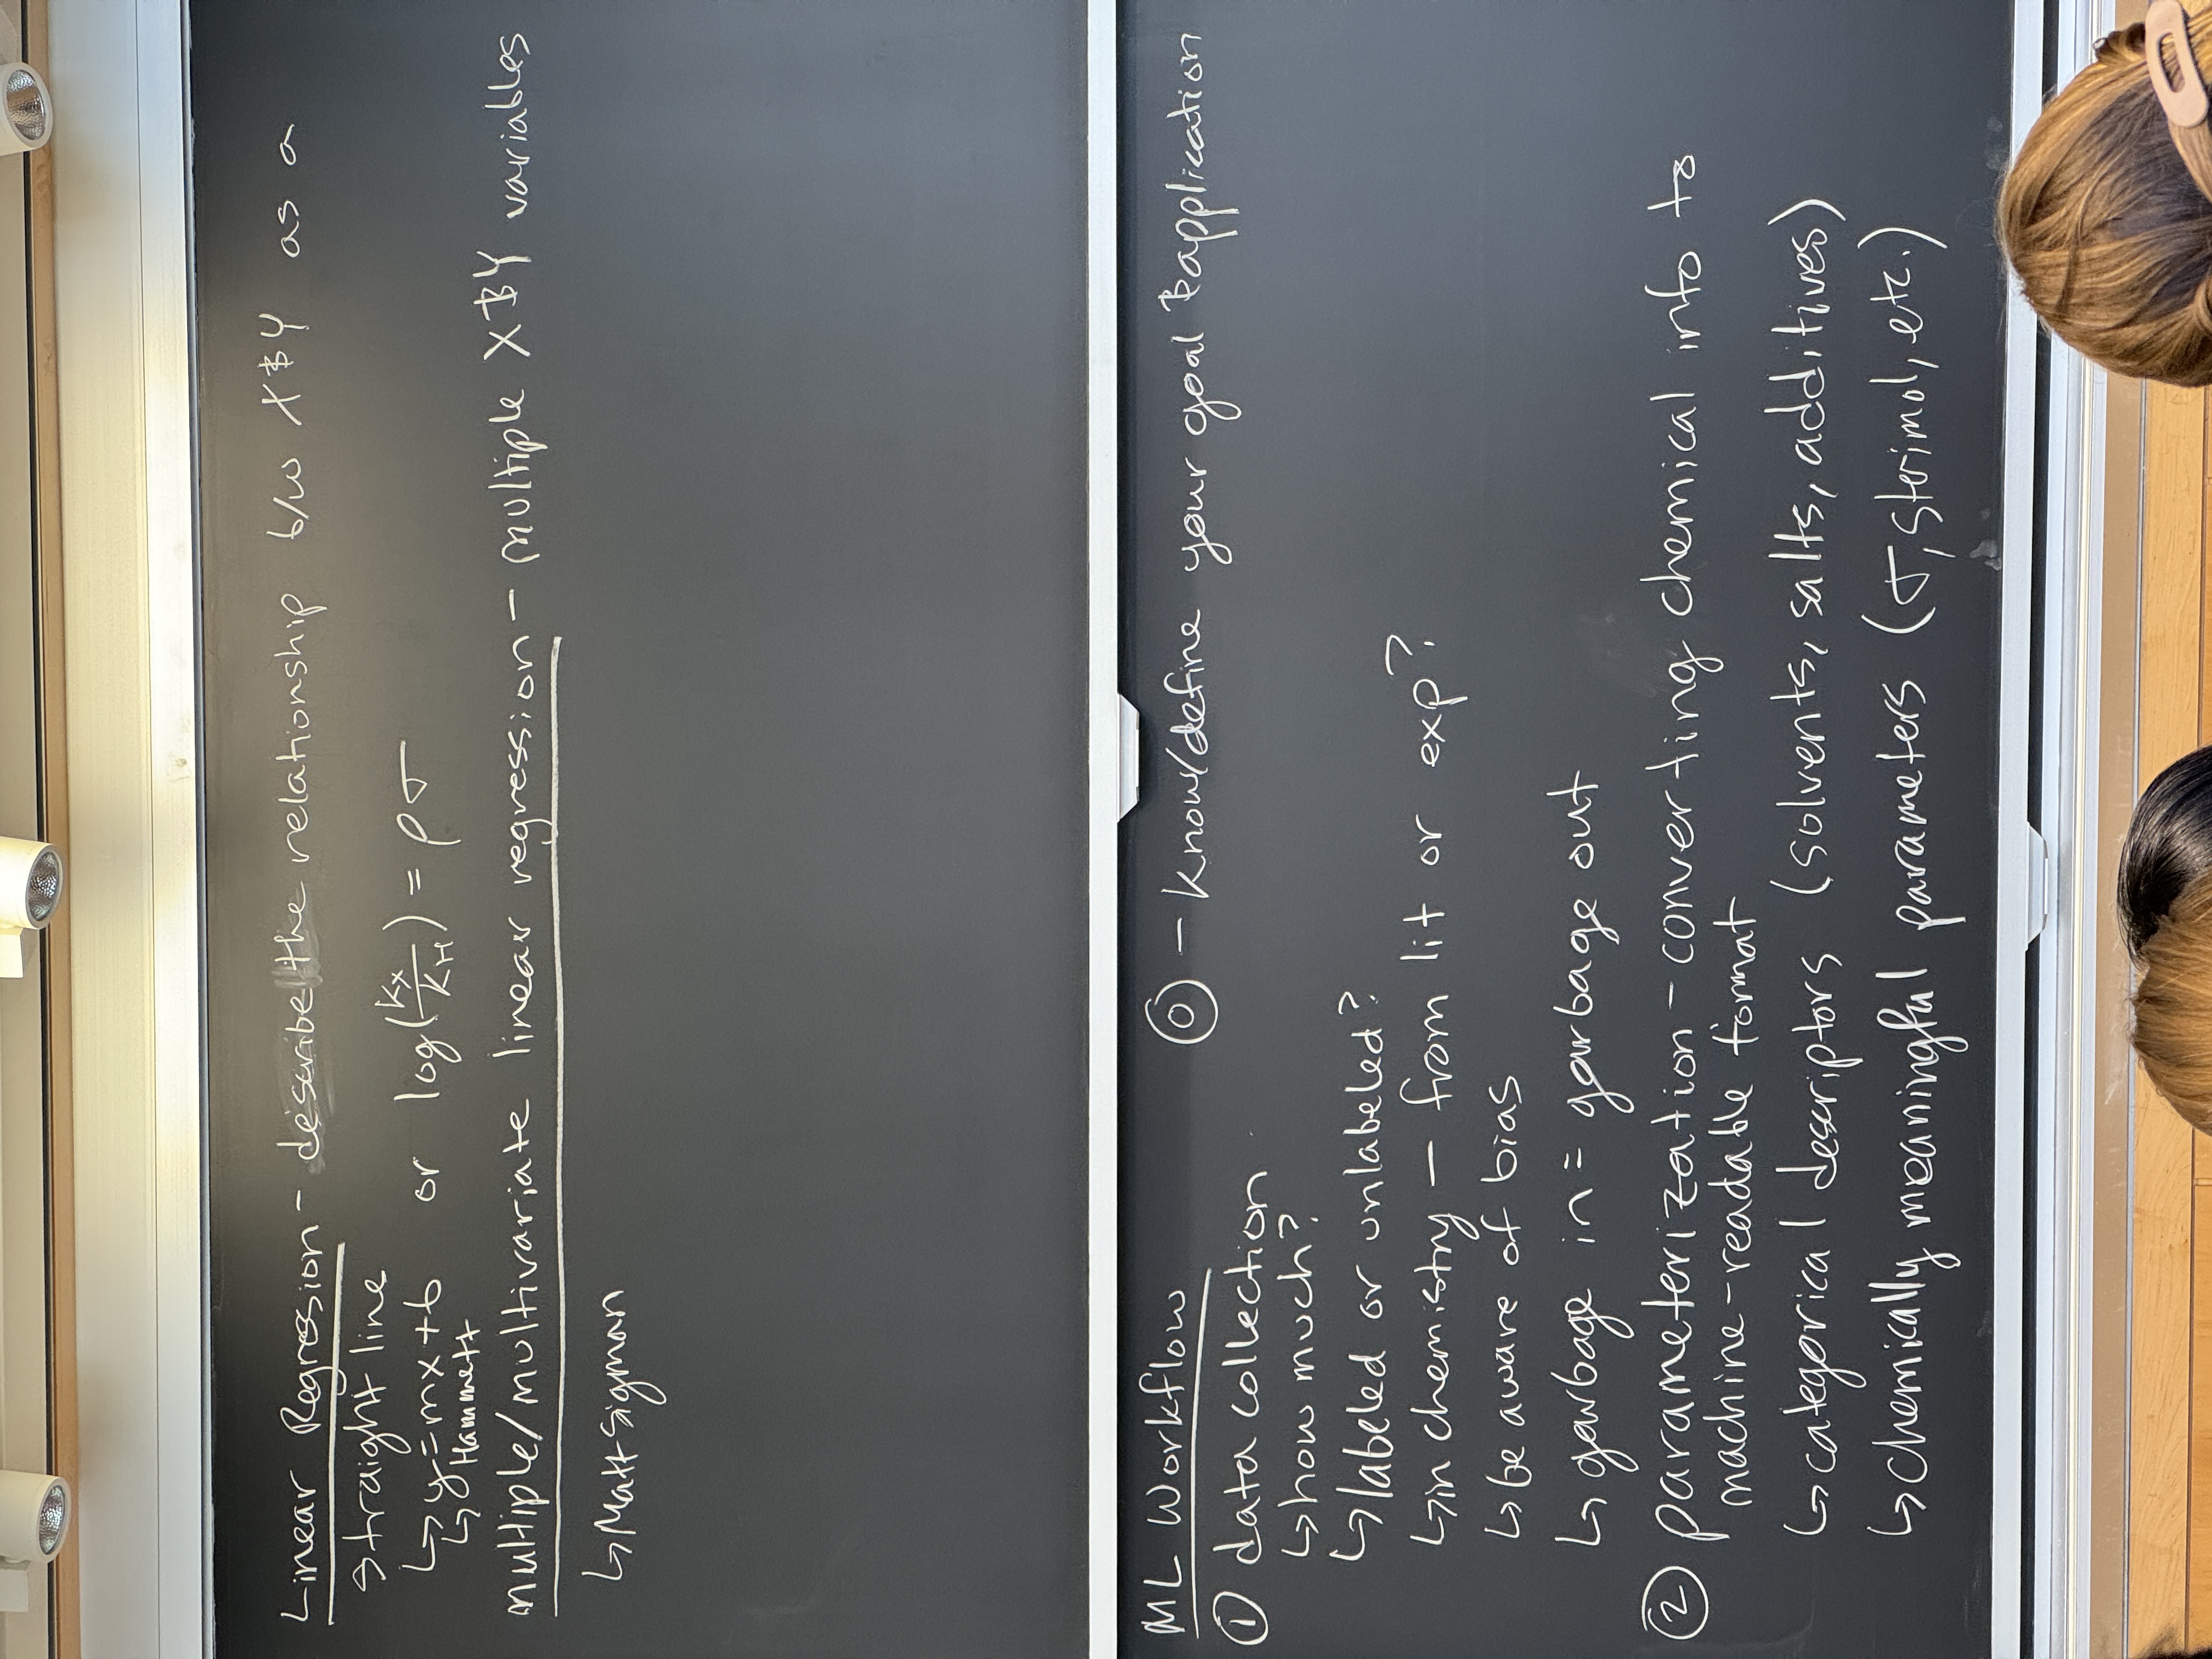 Linear Regression - describe the relationship b/w X & Y as a
straight line
↳ y = mx + b or log(kx/kH) = ρσ
↳ Hammett
multiple/multivariate linear regression - multiple X & Y variables
↳ Matt Sigman
ML Workflow
⓪ - know/define your goal & application
① data collection
↳ how much?
↳ labeled or unlabeled?
↳ in chemistry - from lit or exp?
↳ be aware of bias
↳ garbage in = garbage out
② parameterization - converting chemical info to
machine-readable format
↳ categorical descriptors (solvents, salts, additives)
↳ chemically meaningful parameters (σ, sterimol, etc.)